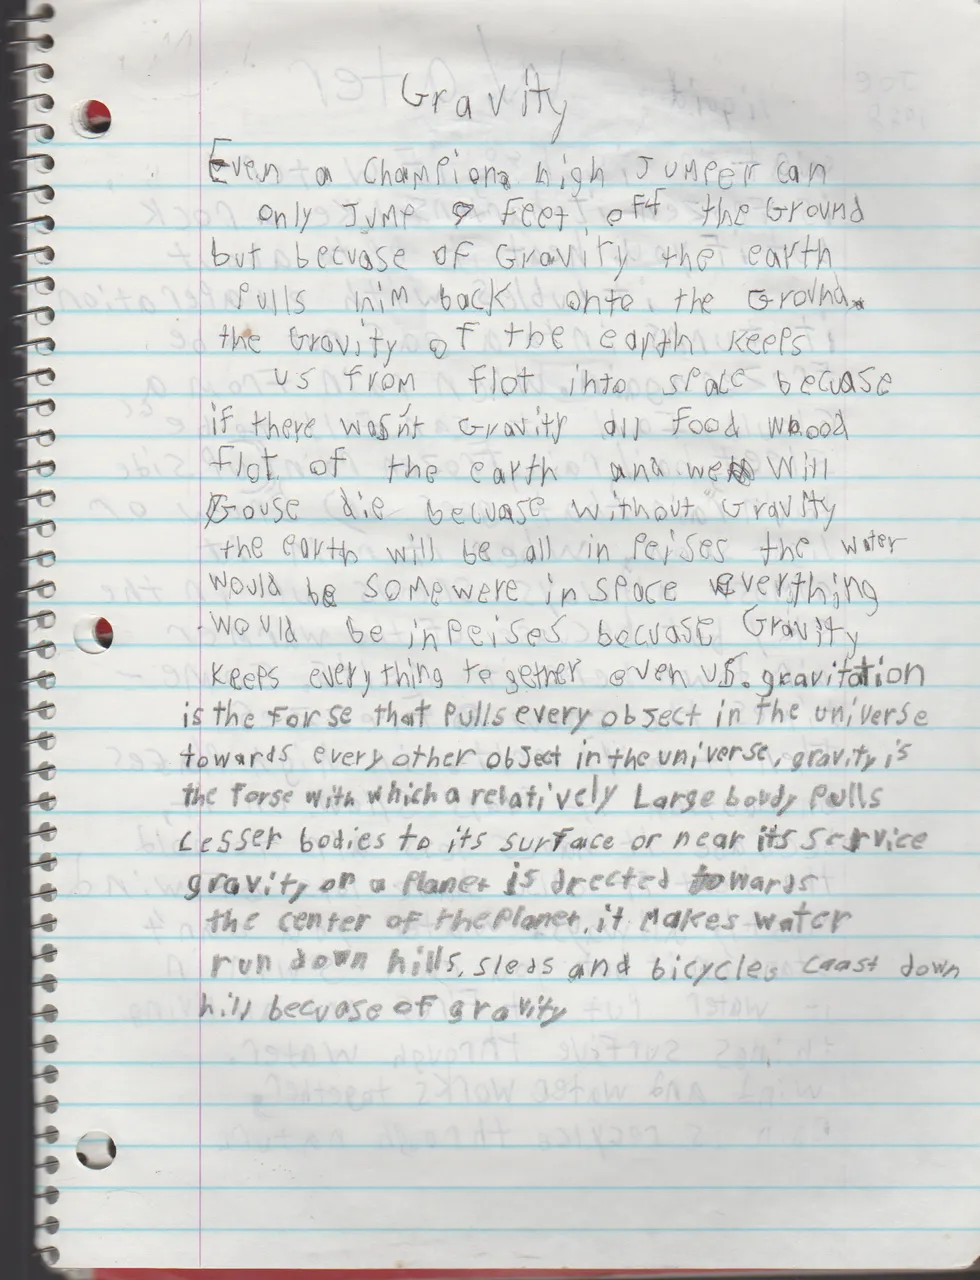 Gravity
Even a Champion high Jumper can
only Jump 9 feet off the Ground
but becuase of Gravity the earth
Pulls him back onto the Ground.
the Gravity of the earth keeps
us from flot into space becuase
if there wasn't Gravity all food whood
flot of the earth and we will
die becuase without Gravity
the earth will be all in Peises the water
would be somewere in space everything
would be in Peises becuase Gravity
keeps everything together even us. gravitation
is the forse that Pulls every obJect in the universe
towards every other obJect in the universe, gravity is
the forse with which a relatively Large boudy Pulls
Lesser bodies to its surface or near its service
gravity on a Planet is drected towards
the center of the Planet, it Makes water
run down hills, sleds and bicycles coast down
hill becuase of gravity